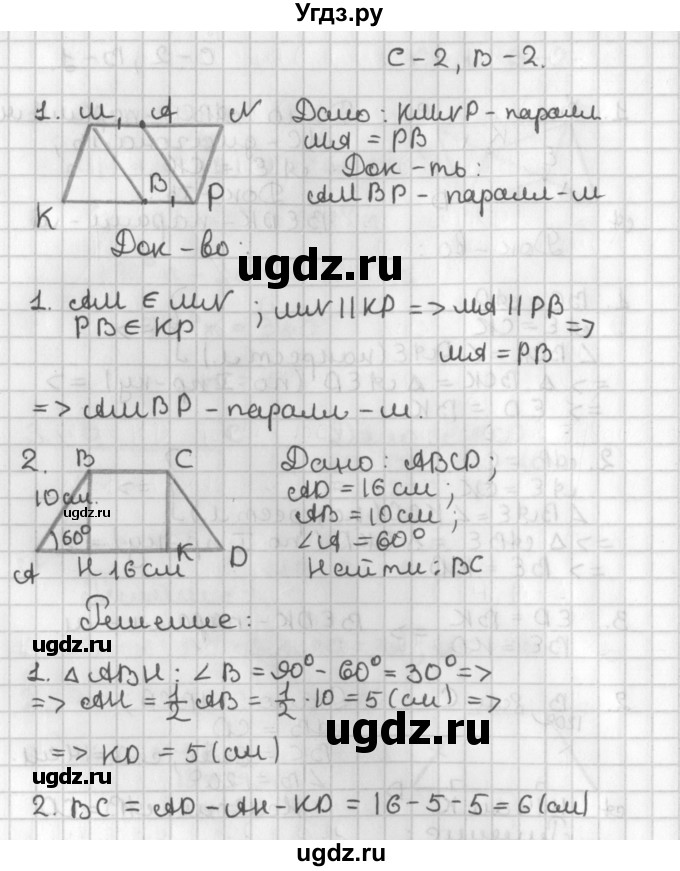 Угдз.ру
С-2, В-2.
1. M, A N
K B, P
Дано: KMNP - паралл.
MA = PB
Док-ть:
AMBP - паралл-м
Док-во:
ugdz.ru
1. AM ∈ MN ; MN || KP => MA || PB
PB ∈ KP =>
MA = PB
=> AMBP - паралл-м.
2. B C
10 см.
60°
A H 16 см K D
Дано: ABCD;
AD = 16 см;
AB = 10 см;
∠A = 60°
Найти: BC
ugdz.ru
Решение:
ugdz.ru
1. △ABH: ∠B = 90° - 60° = 30° =>
=> AH = 1/2 AB = 1/2 · 10 = 5 (см) =>
ugdz.ru
=> KD = 5 (см)
ugdz.ru
2. BC = AD - AH - KD = 16 - 5 - 5 = 6 (см)
ugdz.ru